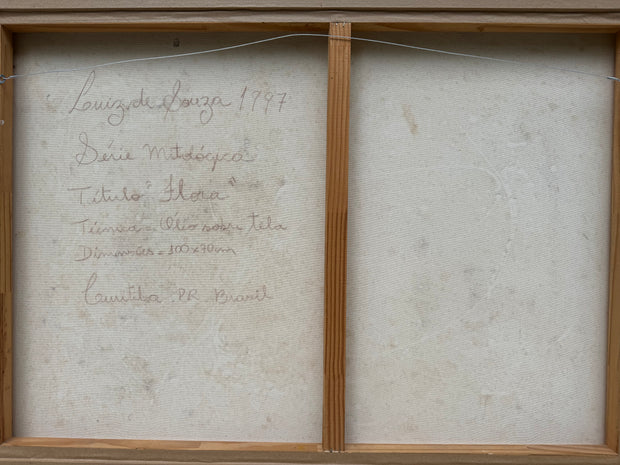 Luiz de Souza 1997
Série Mitológica
Título "Flora"
Técnica = Óleo sobre tela
Dimensões = 100x70cm
Curitiba PR. Brasil